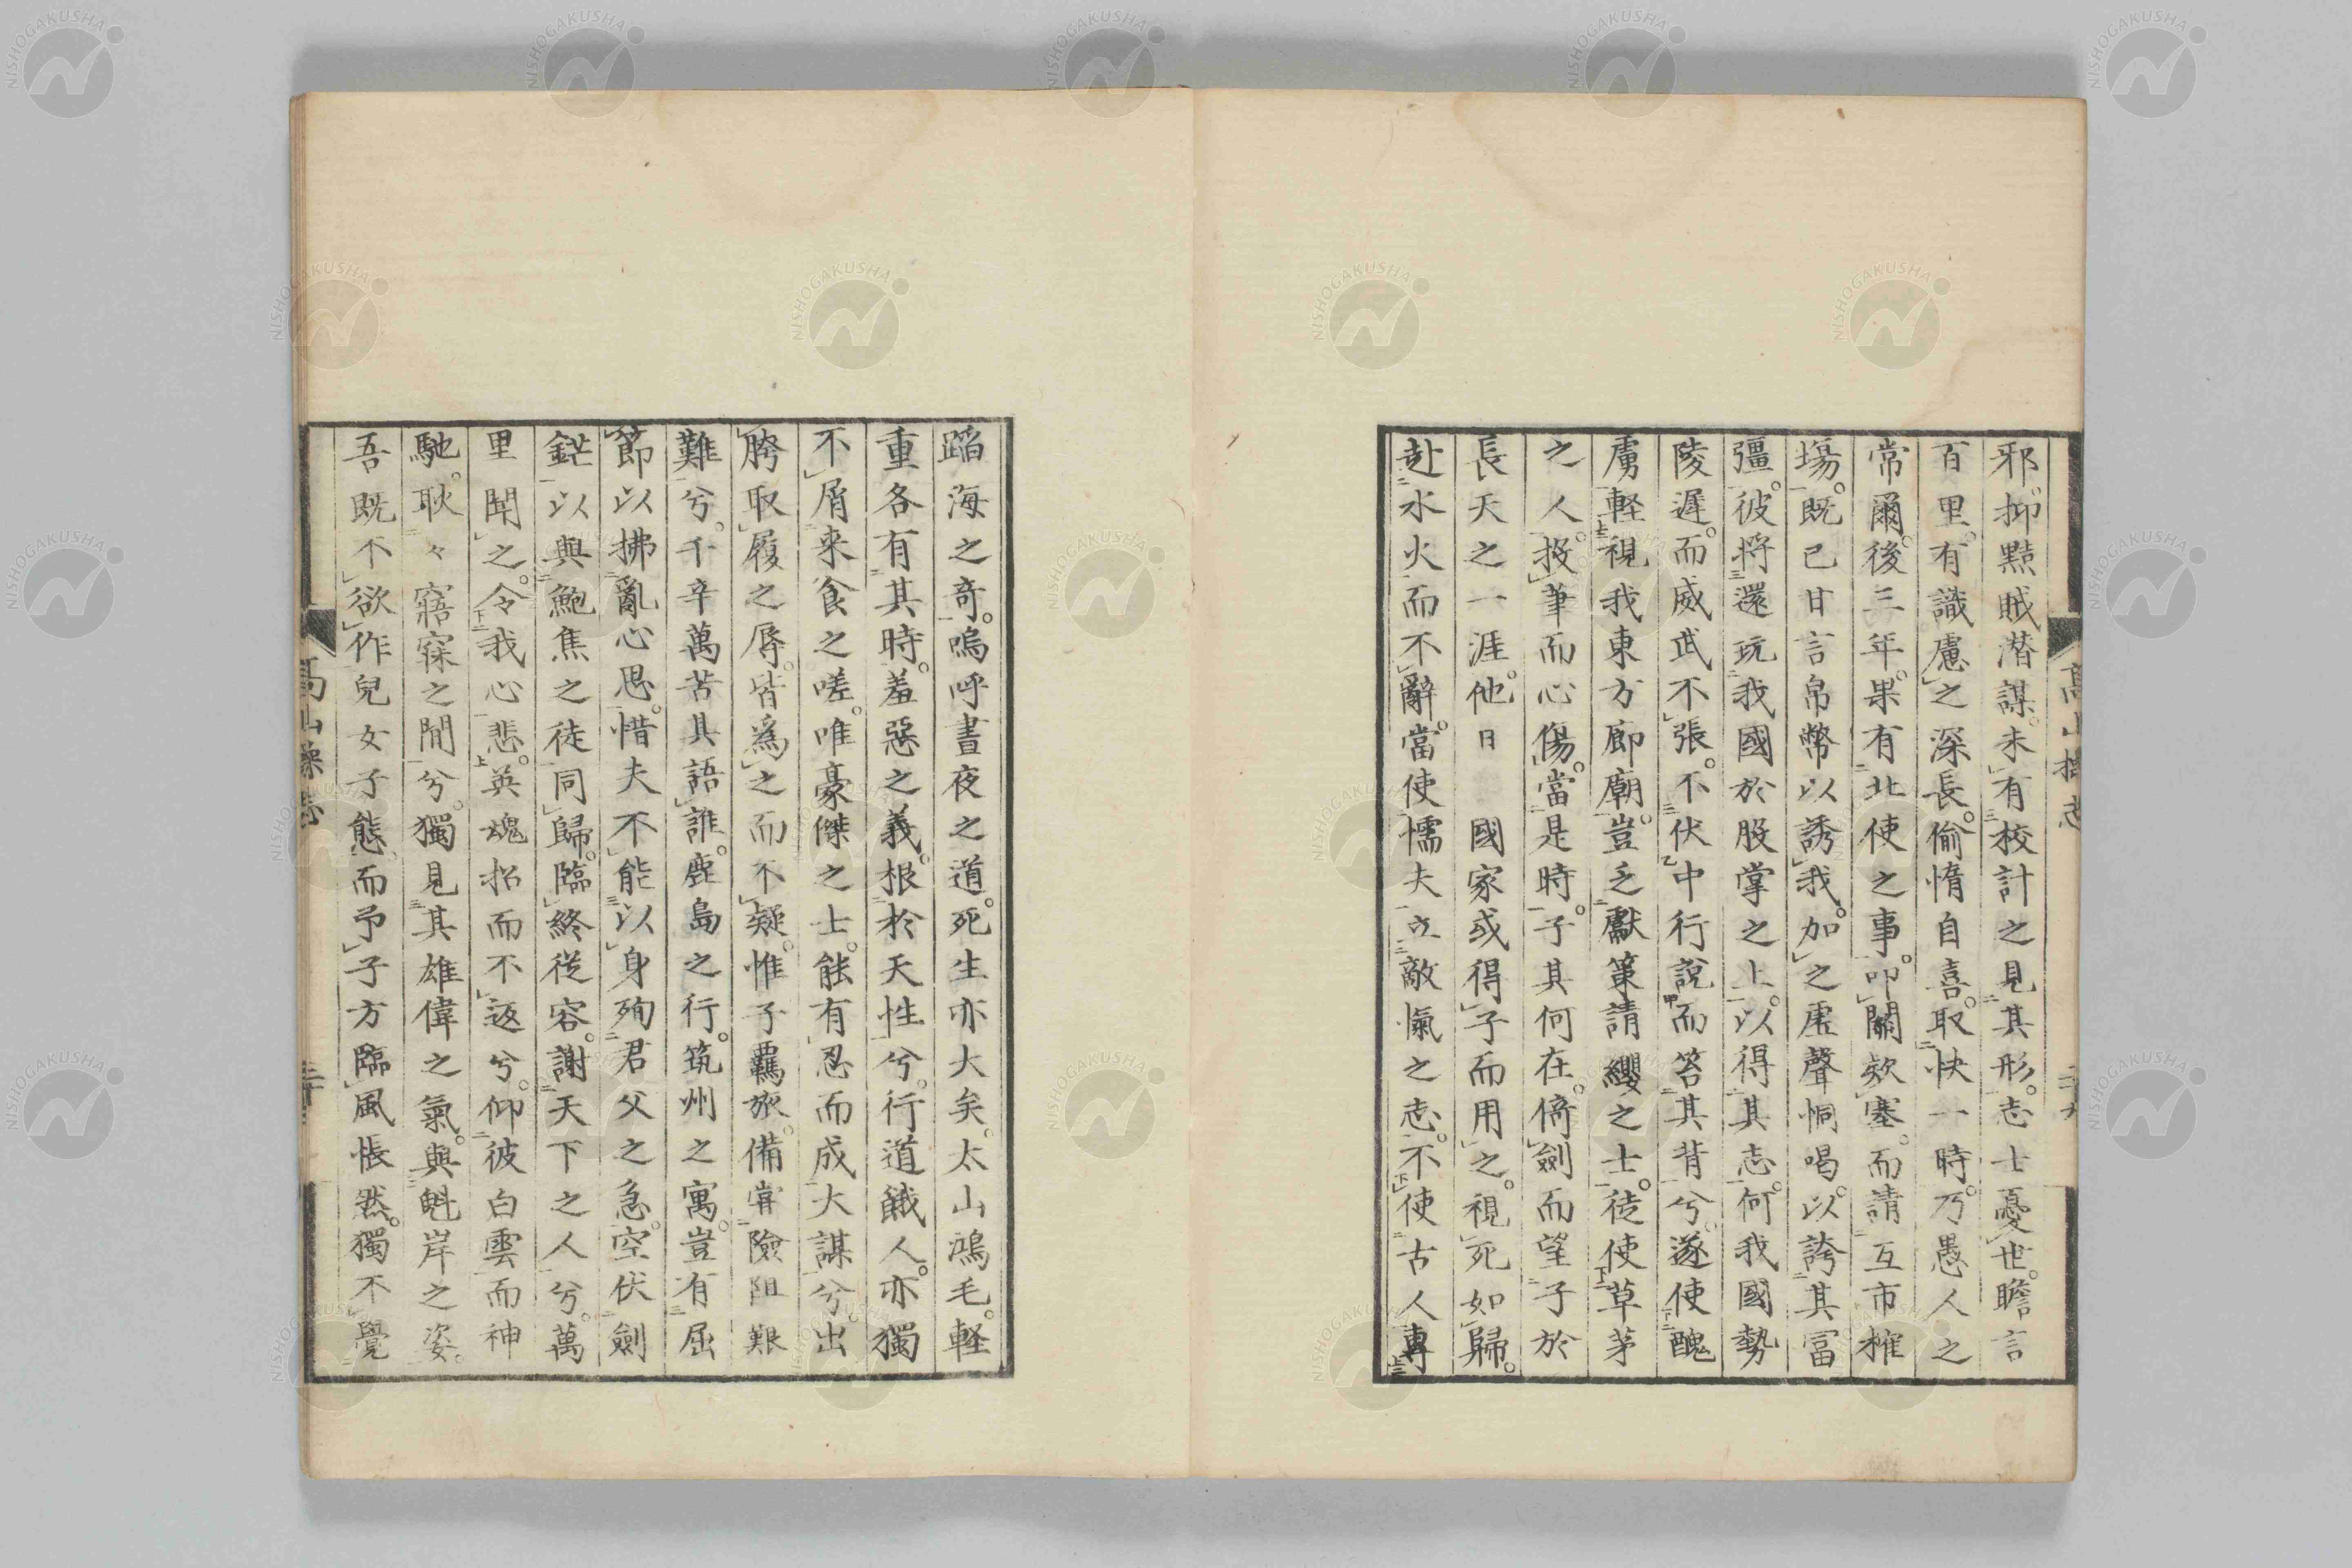 邪。抑黠賊潛謀。未有校計之見其形。志士憂世。瞻言
百里。有識慮之深長。偷惰自喜。取快一時。乃愚人之
常爾。後三年。果有北使之事。叩關欵塞。而請互市榷
場。既已甘言帛幣以誘我。加之虛聲恫喝。以誇其富
彊。彼將還玩我國於股掌之上。以得其志。何我國勢
陵遲。而威武不張。不伏中行說而笞其背兮。遂使醜
虜輕視我東方廊廟。豈乏獻策請纓之士。徒使草茅
之人。投筆而心傷。當是時。子其何在。倚劍而望子於
長天之一涯。他日 國家或得子而用之。視死如歸。
赴水火而不辭。當使懦夫立敵愾之志。不使古人專
蹈海之奇。嗚呼晝夜之道。死生亦大矣。太山鴻毛。輕
重各有其時。羞惡之義。根於天性兮。行道餓人。亦獨
不屑來食之嗟。唯豪傑之士。能有忍而成大謀兮。出
胯取履之辱。皆為之而不疑。惟子羈旅。備嘗險阻艱
難兮。千辛萬苦其語誰。鹿島之行。筑州之寓。豈有屈
節以拂亂心思。惜夫不能以身殉君父之急。空伏劍
鋩以與鮑焦之徒同歸。臨終從容。謝天下之人兮。萬
里聞之。令我心悲。英魂招而不返兮。仰彼白雲而神
馳。耿々寤寐之間兮。獨見其雄偉之氣。與魁岸之姿。
吾既不欲作兒女子態。而予子方臨風悵然。獨不覺
高山操志
二十九
高山操志
三十